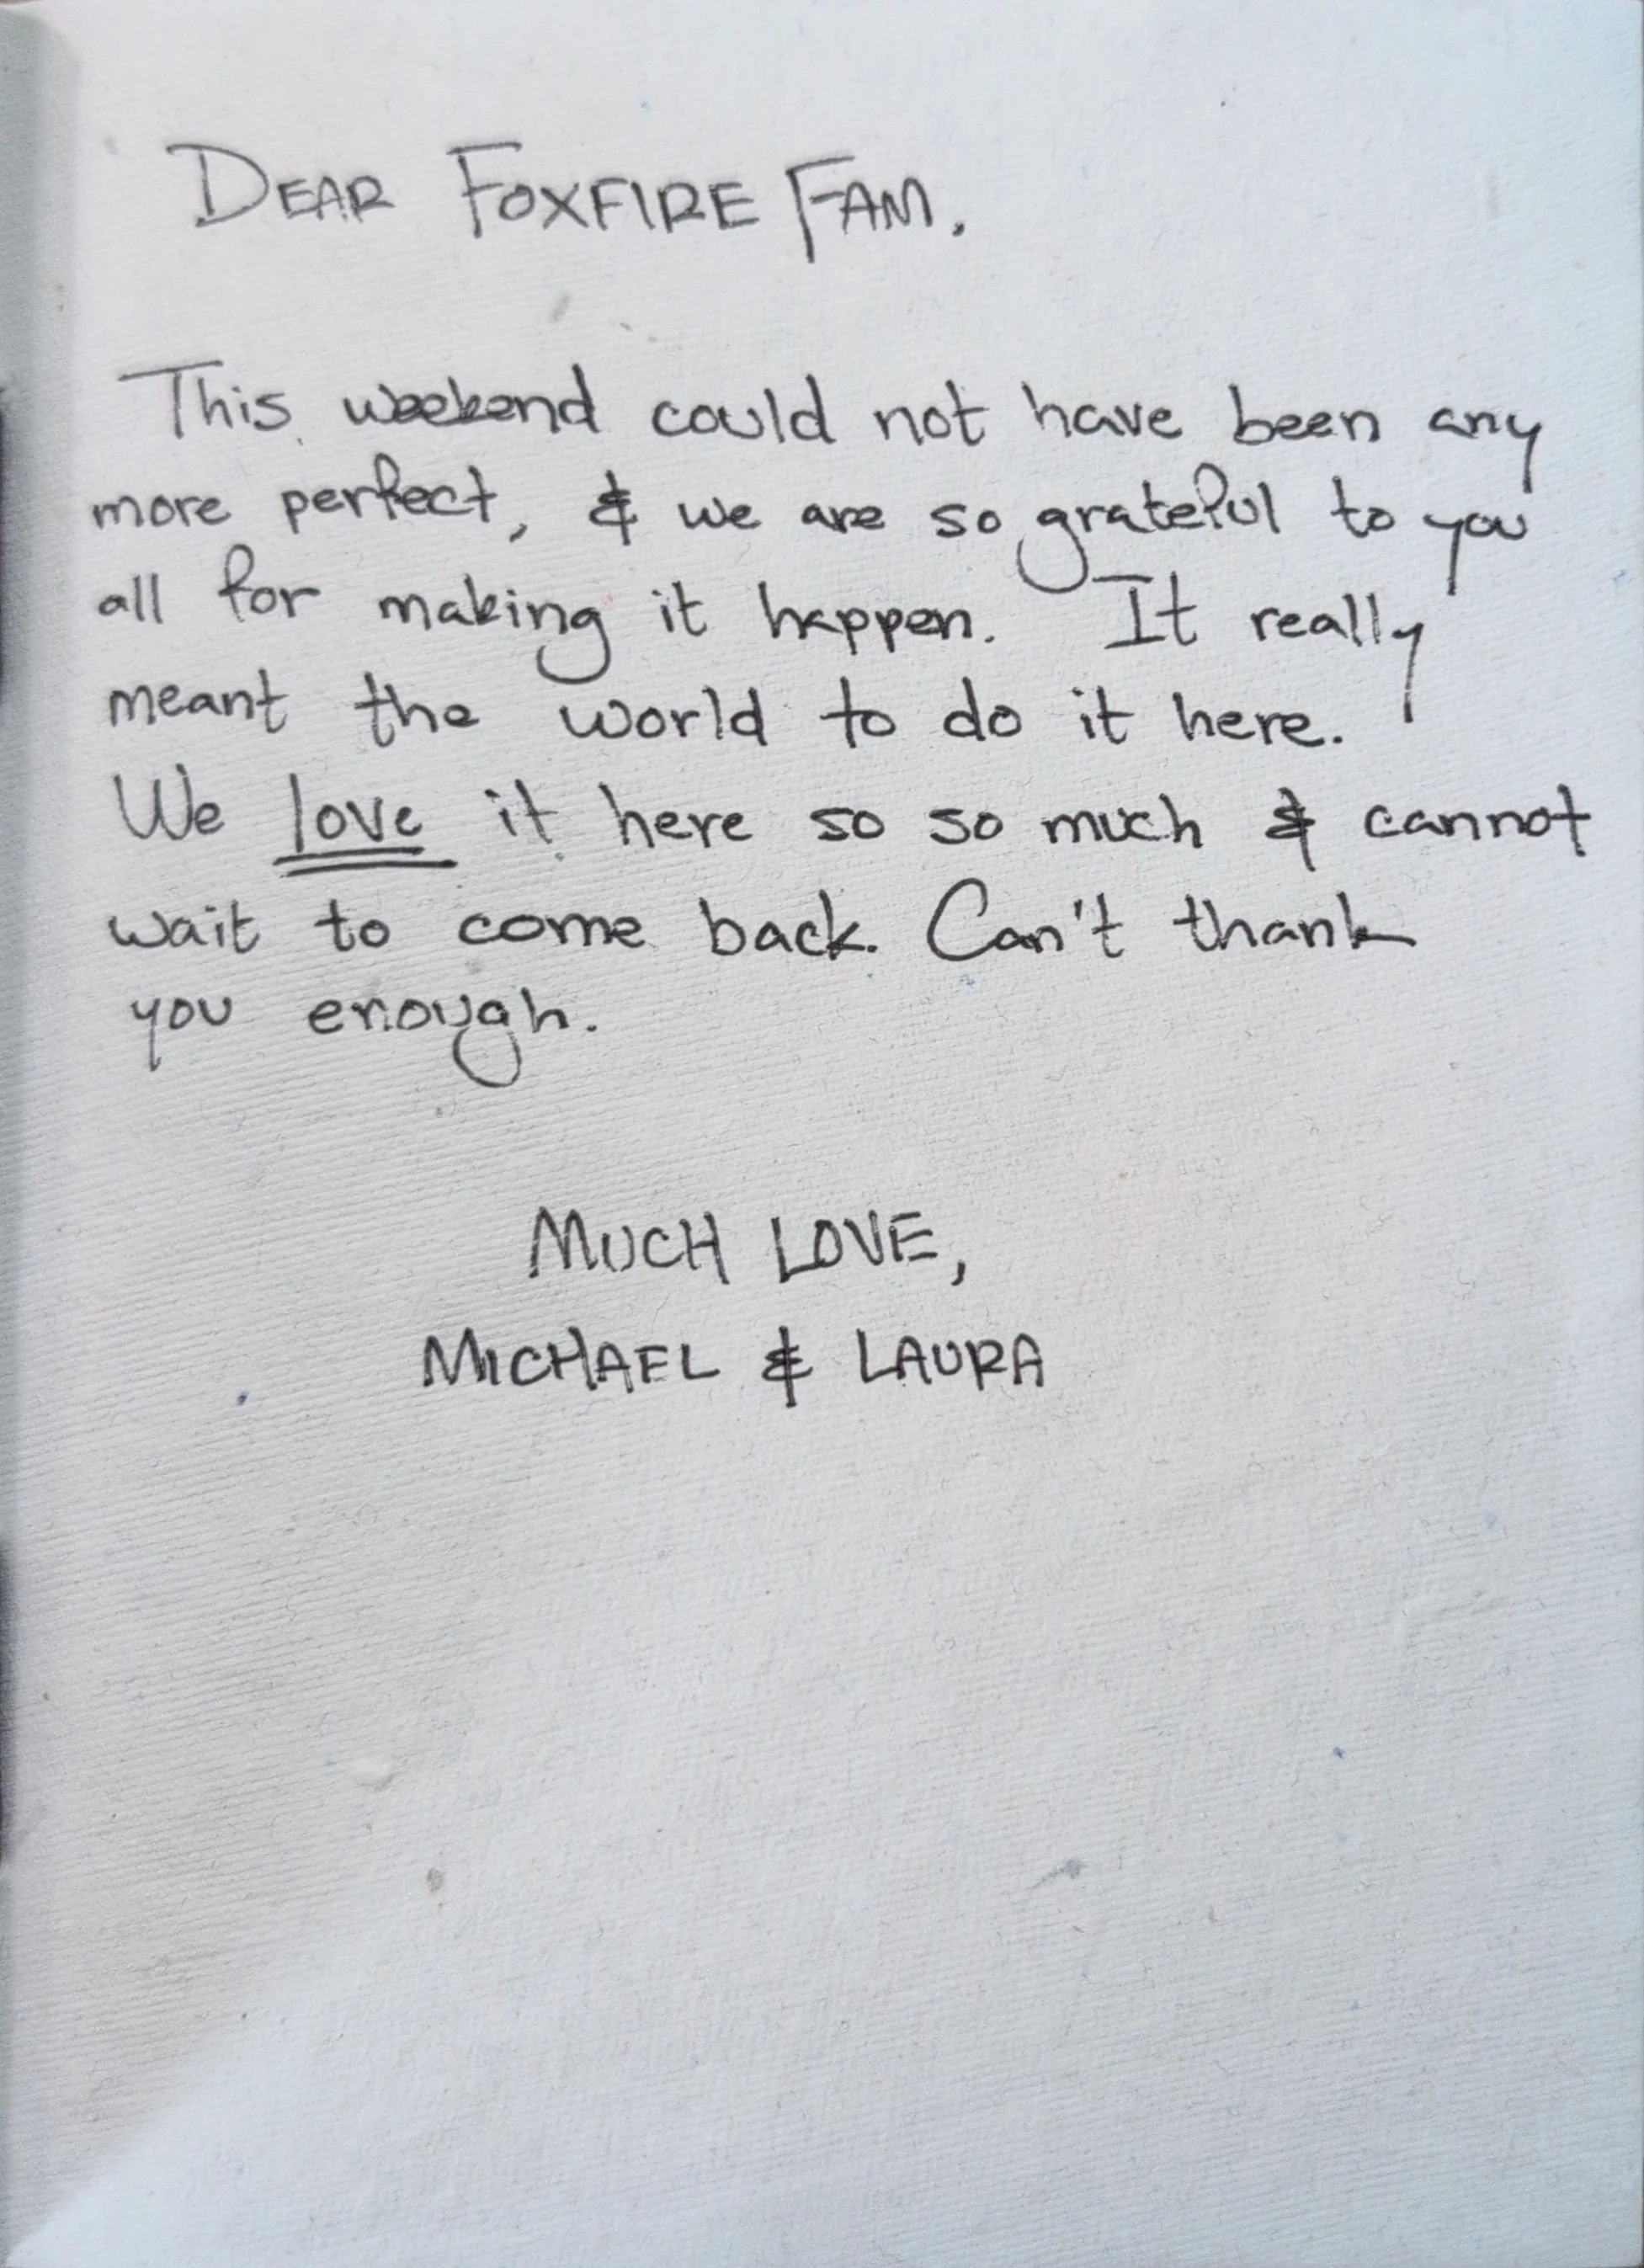 DEAR FOXFIRE FAM,
This weekend could not have been any
more perfect, & we are so grateful to you
all for making it happen. It really
meant the world to do it here.
We love it here so so much & cannot
wait to come back. Can't thank
you enough.
MUCH LOVE,
MICHAEL & LAURA